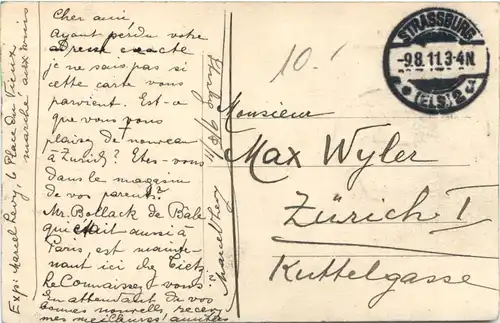 Cher ami,
Ayant perdu votre
adresse exacte
je ne sais pas si
cette carte vous
parvient. Est-ce
que vous vous
plaisez de nouveau
à Zurich? Etes-vous
dans le magasin
de vos parents?
Mr. Bollack de Bâle
qui était aussi à
Paris, est mainte-
nant ici chez Tietz.
Le Connaissez-vous?
En attendant de vos
bonnes nouvelles recev
mes meilleures amitiés
Marcel Levy
Exp: Marcel Levy, 6 Place du Vieux
marché aux vins
STRASSBURG
-9.8.11.3-4N
* (ELS.) 2 c
10.-
Monsieur
Max Wyler
Zürich I
Kuttelgasse